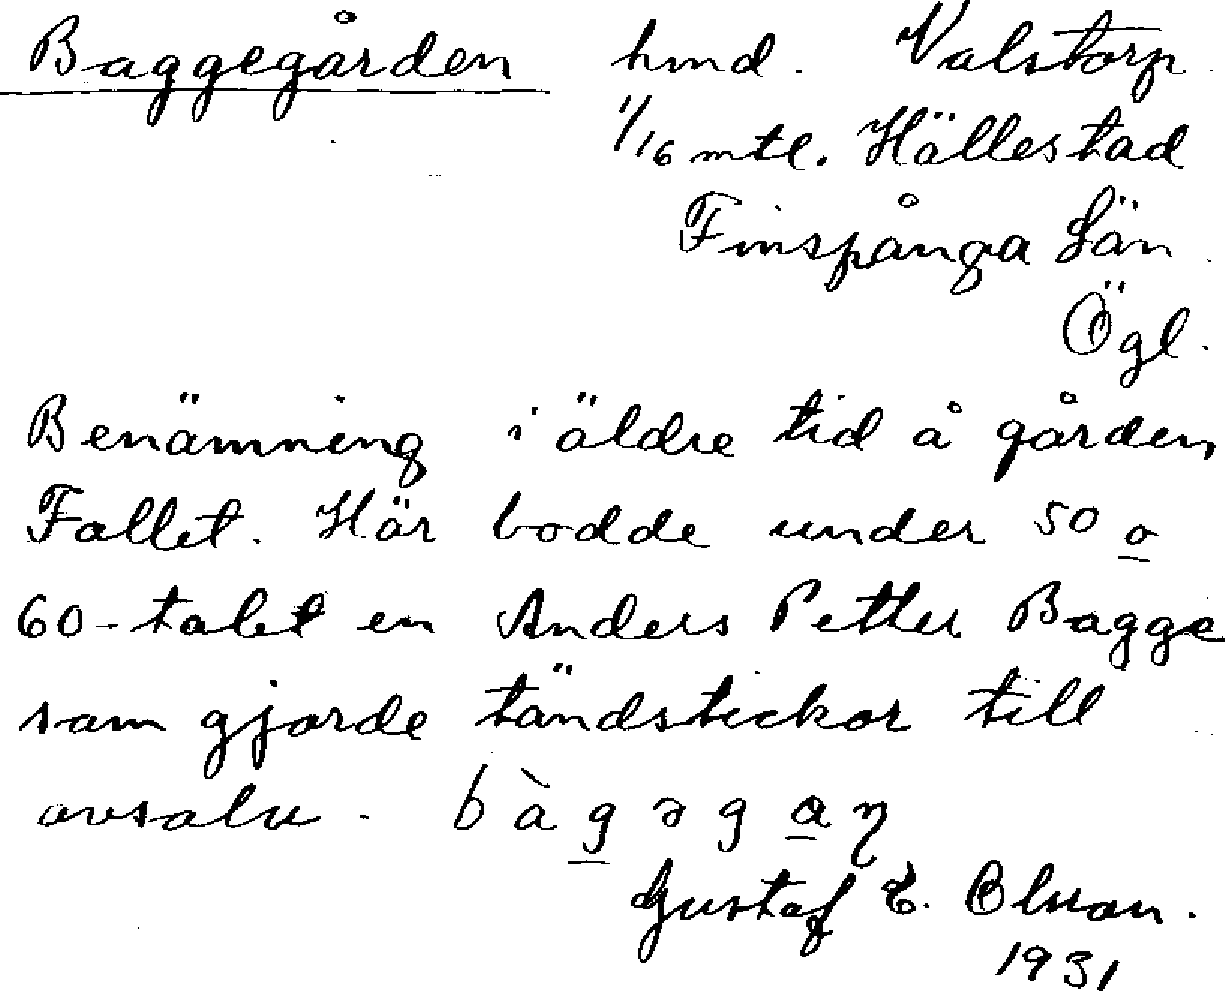 Baggegården hmd. Valstorp
1/16 mtl. Hällestad
Finspånga län
Ögl.
Benämning i äldre tid å gården
Fallet. Här bodde under 50 o
60-talet en Anders Petter Bagge
som gjorde tändstickor till
avsalu. bàgəgaŋ
Gustaf E. Olsson.
1931